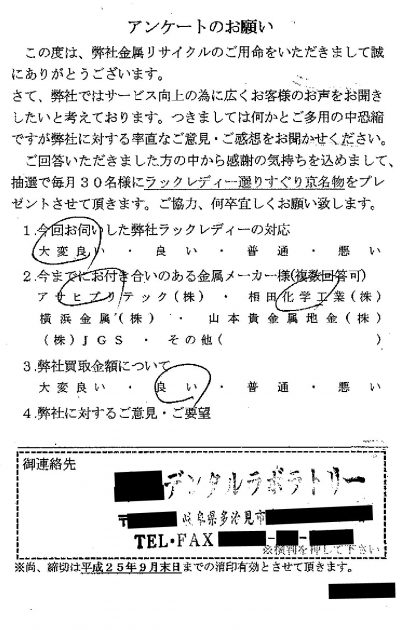 アンケートのお願い
この度は、弊社金属リサイクルのご用命をいただきまして誠
にありがとうございます。
さて、弊社ではサービス向上の為に広くお客様のお声をお聞き
したいと考えております。つきましては何かとご多用の中恐縮
ですが弊社に対する率直なご意見・ご感想をお聞かせください。
ご回答いただきました方の中から感謝の気持ちを込めまして、
抽選で毎月30名様にラックレディー選りすぐり京名物をプレ
ゼントさせて頂きます。ご協力、何卒宜しくお願い致します。
1.今回お伺いした弊社ラックレディーの対応
大変良い ・ 良い ・ 普通 ・ 悪い
2.今までにお付き合いのある金属メーカー様(複数回答可)
アサヒプリテック(株) ・ 相田化学工業(株)
横浜金属(株) ・ 山本貴金属地金(株)
(株)JGS・その他( )
3.弊社買取金額について
大変良い ・ 良い ・ 普通 ・ 悪い
4.弊社に対するご意見・ご要望
御連絡先
デンタルラボラトリー
〒 岐阜県多治見市
TEL・FAX
※横判を押して下さい
※尚、締切は平成25年9月末日までの消印有効とさせて頂きます。